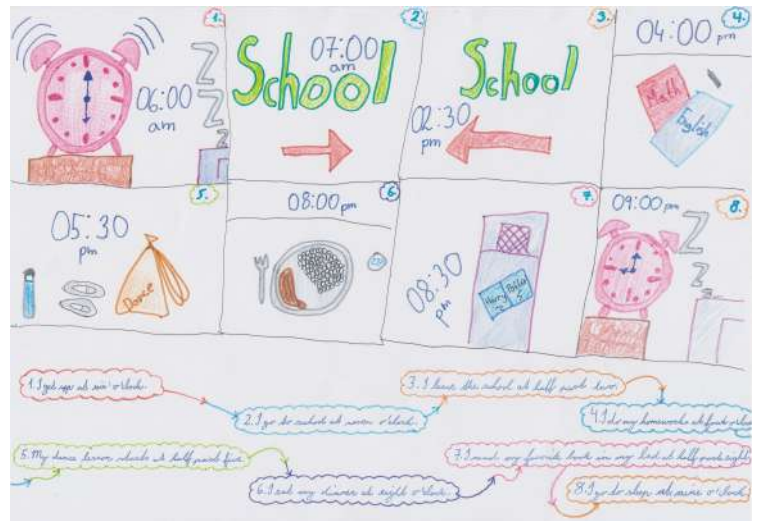 1.
06:00
am
Z
Z
Z
2.
07:00
am
School
3.
School
02:30
pm
4.
04:00 pm
Math
English
5.
05:30
pm
Dance
6.
08:00 pm
7.
08:30
pm
Harry Potter
8.
09:00 pm
Z
Z
1. I get up at six o'clock.
2. I go to school at seven o'clock.
3. I leave the school at half past two.
4. I do my homeworks at four o'clock
5. My dance lesson starts at half past five.
6. I eat my dinner at eight o'clock.
7. I read my favorite book in my bed at half past eight
8. I go to sleep at nine o'clock.